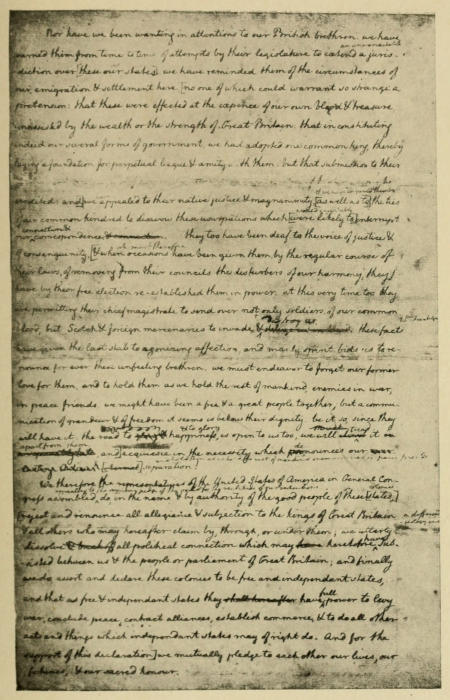 Nor have we been wanting in attentions to our British brethren. we have
warned them from time to time of attempts by their legislature to extend a juris-
diction over [these our states] we have reminded them of the circumstances of
our emigration & settlement here [no one of which could warrant so strange a
pretension: that these were effected at the expence of our own blood & treasure
unassisted by the wealth or the strength of Great Britain: that in constituting
indeed our several forms of government, we had adopted one common king, thereby
laying a foundation for perpetual league & amity with them: but that submission to their
and we appealed to their native justice & magnanimity [as well as to] the ties
of our common kindred to disavow these usurpations which [were likely to] interrupt
connection &
correspondence they too have been deaf to the voice of justice &
of consanguinity, [& when occasions have been given them, by the regular course of
their laws, of removing from their councils the disturbers of our harmony, they
have by their free election re-established them in power. at this very time too they
are permitting their chief magistrate to send over not only soldiers of our common
destroy us
blood, but Scotch & foreign mercenaries to invade & these facts
have given the last stab to agonizing affection, and manly spirit bids us to re-
nounce for ever these unfeeling brethren. we must endeavor to forget our former
love for them, and to hold them as we hold the rest of mankind, enemies in war,
in peace friends. we might have been a free & a great people together; but a commu-
nication of grandeur & of freedom it seems is below their dignity. be it so, since they
& to glory
will have it: the road to happiness is open to us too; we will it
apart from them
and] acquiesce in the necessity which denounces our
[eternal] separation!
We therefore the representatives of the United States of America in General Con-
gress assembled, do in the name & by authority of the good people of these [states,]
[reject and renounce all allegiance & subjection to the kings of Great Britain
& all others who may hereafter claim by, through, or under them; we utterly
dissolve all political connection which may heretofore have sub-
sisted between us & the people or parliament of Great Britain; and finally
we do assert and declare these colonies to be free and independant states,
full
and that as free & independant states they have power to levy
war, conclude peace, contract alliances, establish commerce, & to do all other
acts and things which independant states may of right do. And for the
support of this declaration] we mutually pledge to each other our lives, our
fortunes, & our sacred honour.